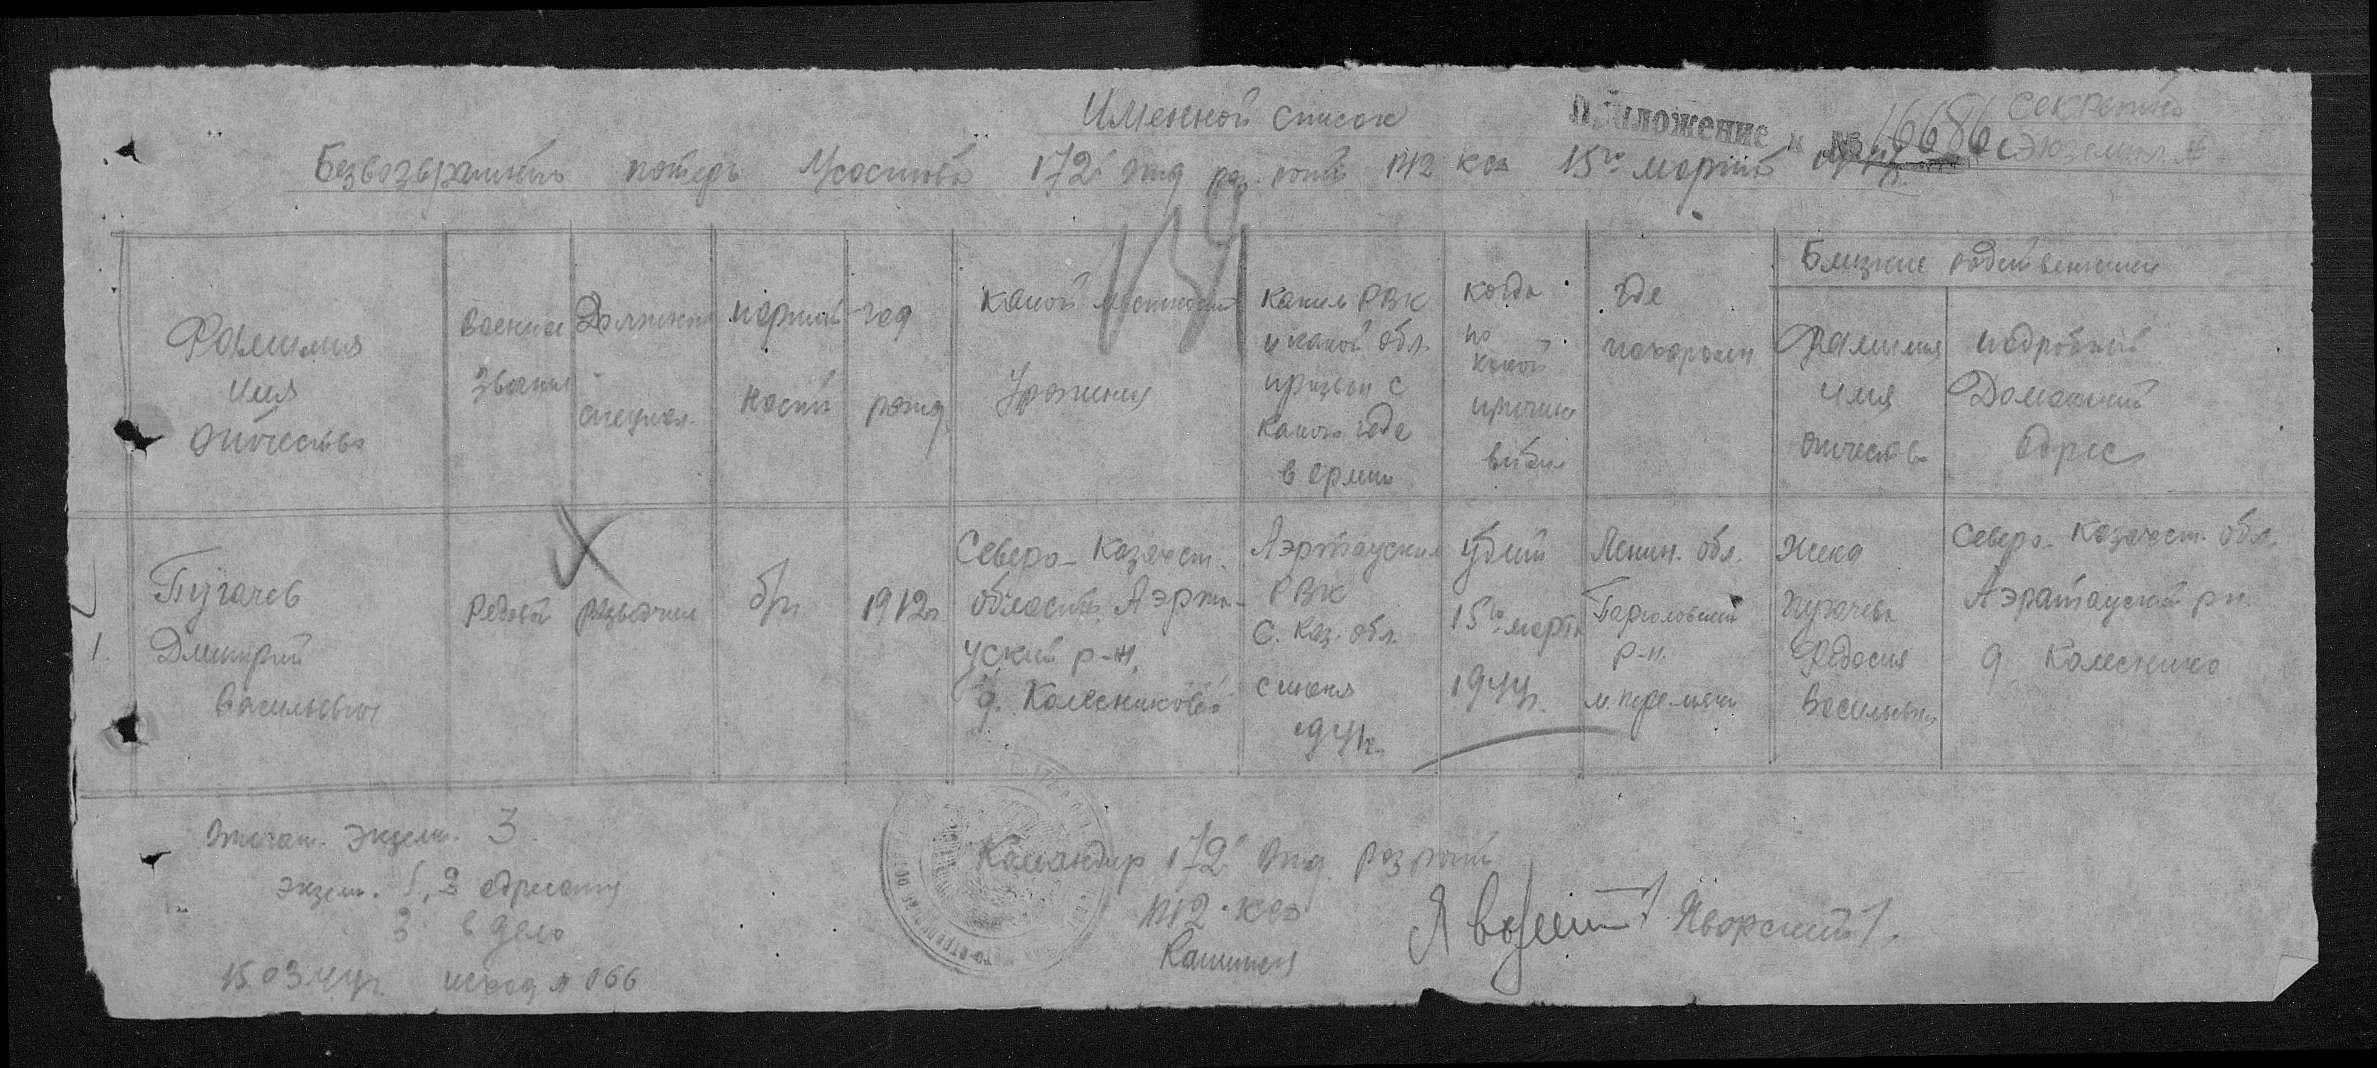 Именной список
Приложение к № 16686с
Секретно
Экземпл. #
Безвозвратных потерь л/состава 172 отд раз. роты на 15го марта 1944г.
Фамилия
имя
отчество
военное
звание
Должность
специал.
партий
ность
год
рожд.
какой местности
Уроженец
каким РВК
и какой обл.
призван с
какого года
в армии
когда
по
какой
причине
выбыл
где
похоронен
Близкие родственники
Фамилия
имя
отчество
подробный
Домашний
адрес
1.
Пугачев
Дмитрий
Васильевич
Рядовой
разведчик
б/п
1912г.
Северо-Казахст.
область, Аэрта-
уский р-н,
д. Колесниково
Аэртауским
РВК
С. Каз. обл.
с июня
1941г.
Убит
15го марта
1944г.
Ленин. обл.
Парголовский
р-н.
Жена
Пугачева
Федосия
Васильевна
Северо-Казахст. обл.
Аэратауский р-н
д Колеснико
Отпечат. экзем. 3.
экзем. 1, 2 адресату
3 в дело
15.03.44г. исход № 066
Командир 172 отд раз роты
Капитан
Яворский /Яворский/.